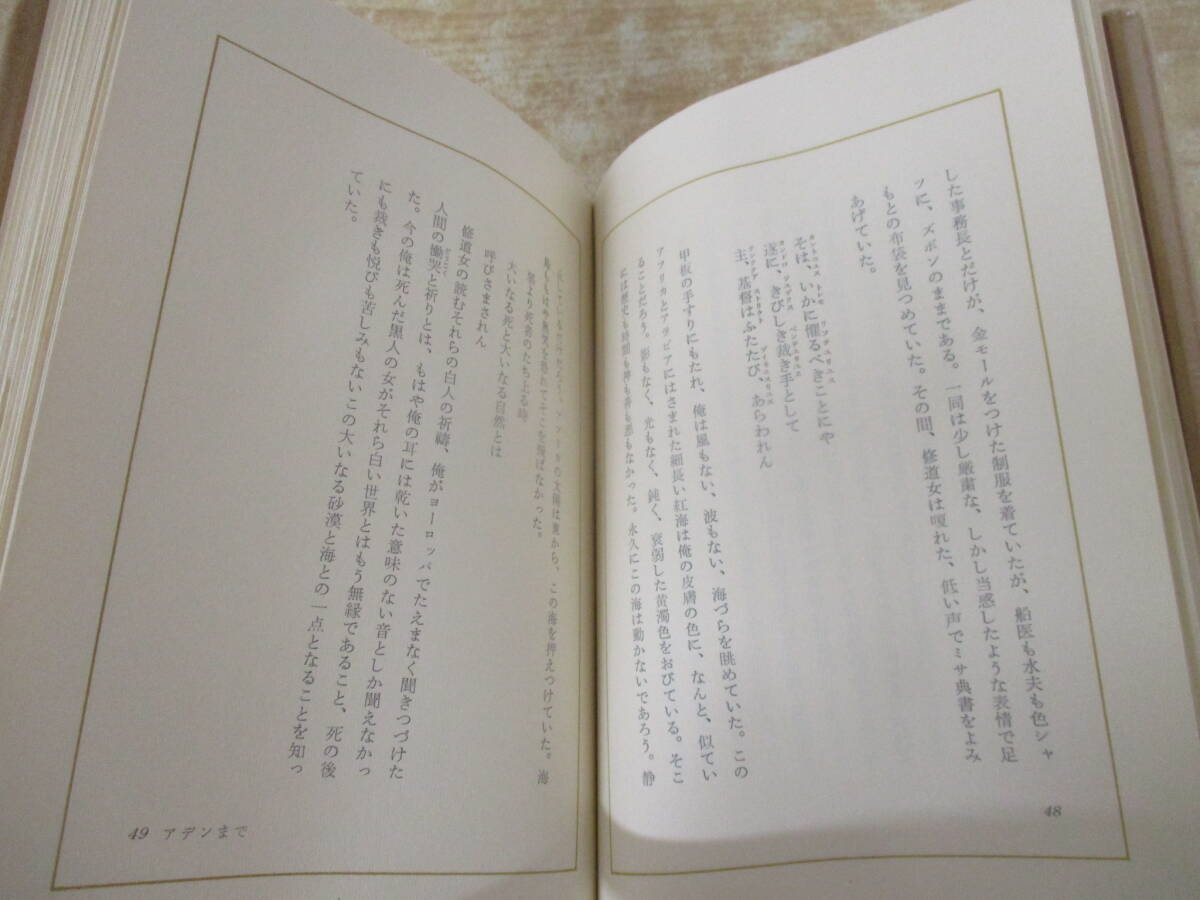 した事務長とだけが、金モールをつけた制服を着ていたが、船医も水夫も色シャ
ツに、ズボンのままである。一同は少し厳粛な、しかし当惑したような表情で足
もとの布袋を見つめていた。その間、修道女は嗄れた、低い声でミサ典書をよみ
あげていた。
そは、いかに懼るべきことにや
遂に、きびしき裁き手として
主、基督はふたたび、あらわれん
甲板の手すりにもたれ、俺は風もない、波もない、海づらを眺めていた。この
アフリカとアラビアにはさまれた細長い紅海は俺の皮膚の色に、なんと、似てい
ることだろう。影もなく、光もなく、鈍く、衰弱した黄濁色をおびている。そこ
には歴史も時間も神も善も悪もなかった。永久にこの海は動かないであろう。静
48
の太陽は東から、この海を押えつけていた。海
鳥もそこを飛ばなかった。
墓より死者のたち上る時
大いなる死と大いなる自然とは
呼びさまされん
修道女の読むそれらの白人の祈禱、俺がヨーロッパでたえまなく聞きつづけた
人間の慟哭と祈りとは、もはや俺の耳には乾いた意味のない音としか聞えなかっ
た。今の俺は死んだ黒人の女がそれら白い世界とはもう無縁であること、死の後
にも裁きも悦びも苦しみもないこの大いなる砂漠と海との一点となることを知っ
ていた。
49 アデンまで